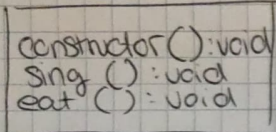 constructor():void
sing () : void
eat () : void